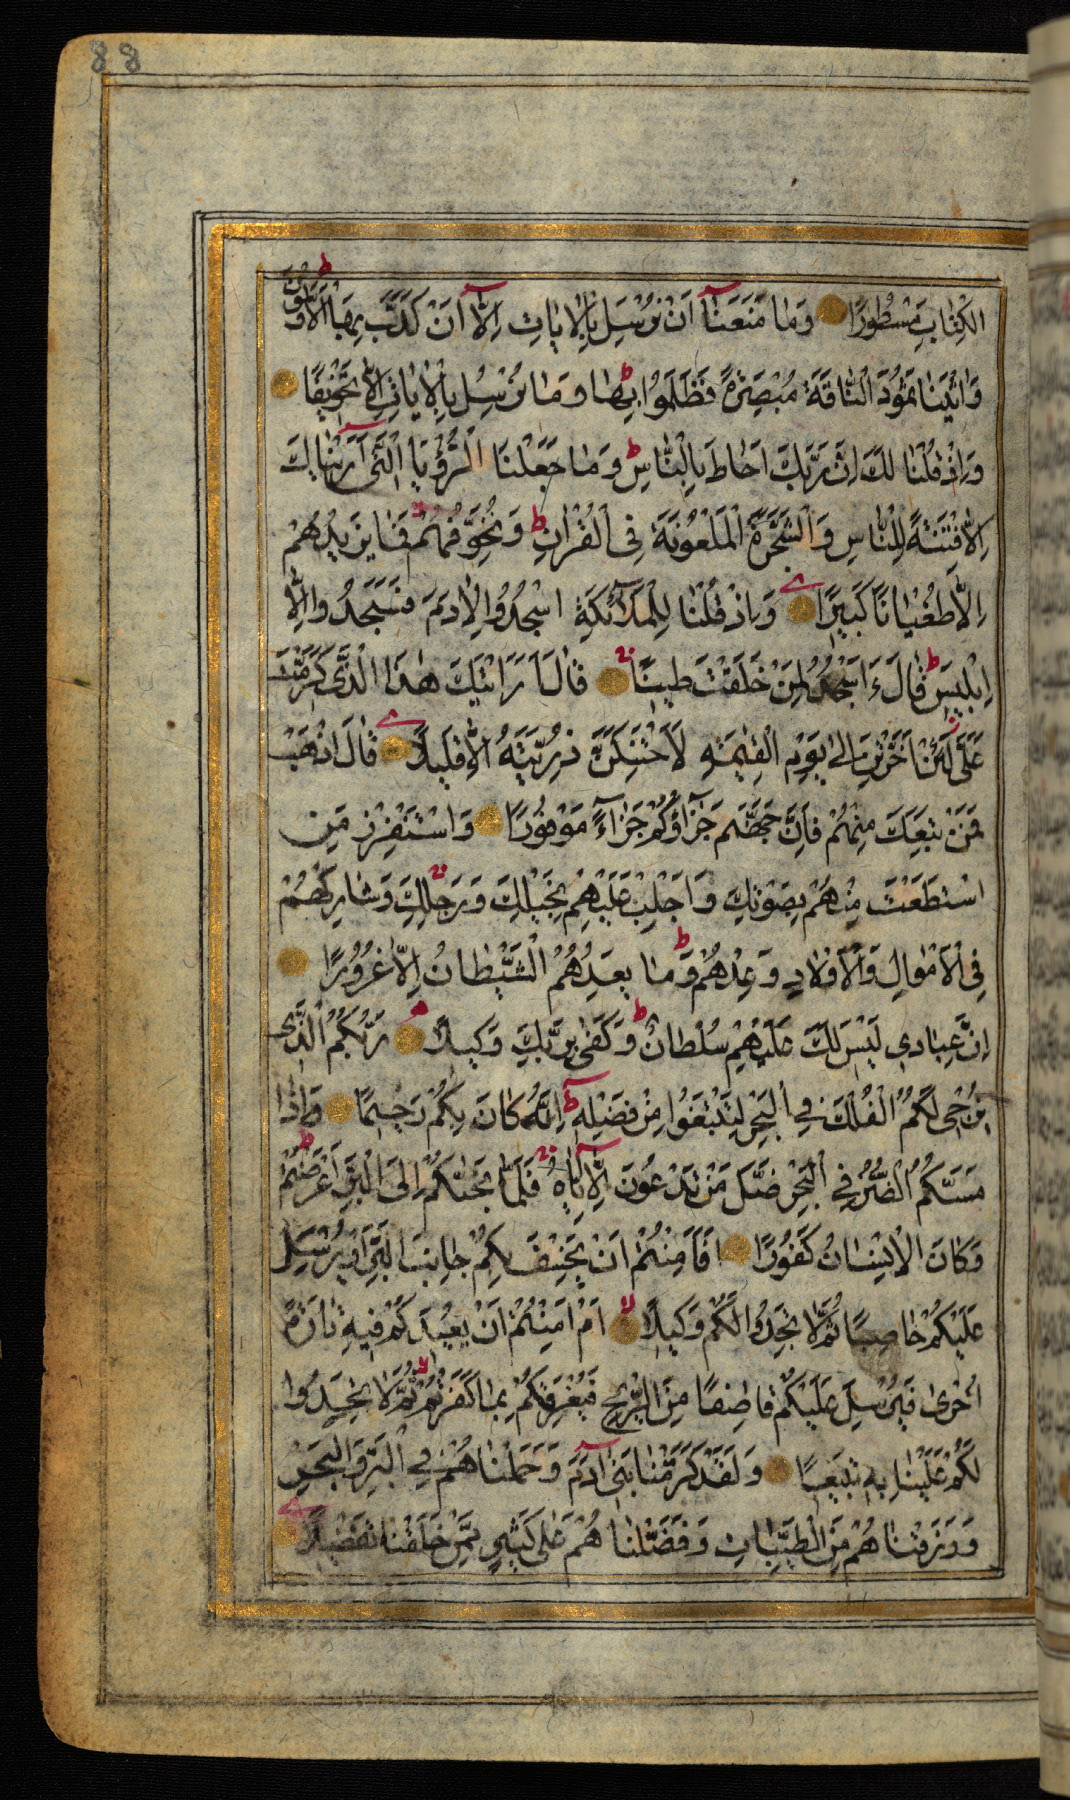 88
الكِتَابِ مَسْطُورًا وَمَا مَنَعَنَآ اَنْ نُرْسِلَ بِالْاٰيَاتِ اِلَّآ اَنْ كَذَّبَ بِهَا الْاَوَّلُونَ
وَاٰتَيْنَا ثَمُودَ النَّاقَةَ مُبْصِرَةً فَظَلَمُوا بِهَا وَمَا نُرْسِلُ بِالْاٰيَاتِ اِلَّا تَخْوِيفًا
وَاِذْ قُلْنَا لَكَ اِنَّ رَبَّكَ اَحَاطَ بِالنَّاسِ وَمَا جَعَلْنَا الرُّؤْيَا الَّتِىٓ اَرَيْنَاكَ
اِلَّا فِتْنَةً لِلنَّاسِ وَالشَّجَرَةَ الْمَلْعُونَةَ فِى الْقُرْاٰنِ وَنُخَوِّفُهُمْ فَمَا يَزِيدُهُمْ
اِلَّا طُغْيَانًا كَبِيرًا وَاِذْ قُلْنَا لِلْمَلٰٓئِكَةِ اسْجُدُوا لِاٰدَمَ فَسَجَدُوا اِلَّا
اِبْلِيسَ قَالَ ءَاَسْجُدُ لِمَنْ خَلَقْتَ طِينًا قَالَ اَرَاَيْتَكَ هٰذَا الَّذِى كَرَّمْتَ
عَلَىَّ لَئِنْ اَخَّرْتَنِ اِلٰى يَوْمِ الْقِيٰمَةِ لَاَحْتَنِكَنَّ ذُرِّيَّتَهُ اِلَّا قَلِيلًا قَالَ اذْهَبْ
فَمَنْ تَبِعَكَ مِنْهُمْ فَاِنَّ جَهَنَّمَ جَزَآؤُكُمْ جَزَآءً مَوْفُورًا وَاسْتَفْزِزْ مَنِ
اسْتَطَعْتَ مِنْهُمْ بِصَوْتِكَ وَاَجْلِبْ عَلَيْهِمْ بِخَيْلِكَ وَرَجِلِكَ وَشَارِكْهُمْ
فِى الْاَمْوَالِ وَالْاَوْلَادِ وَعِدْهُمْ وَمَا يَعِدُهُمُ الشَّيْطَانُ اِلَّا غُرُورًا
اِنَّ عِبَادِى لَيْسَ لَكَ عَلَيْهِمْ سُلْطَانٌ وَكَفٰى بِرَبِّكَ وَكِيلًا رَبُّكُمُ الَّذِى
يُزْجِى لَكُمُ الْفُلْكَ فِى الْبَحْرِ لِتَبْتَغُوا مِنْ فَضْلِهِ اِنَّهُ كَانَ بِكُمْ رَحِيمًا وَاِذَا
مَسَّكُمُ الضُّرُّ فِى الْبَحْرِ ضَلَّ مَنْ تَدْعُونَ اِلَّآ اِيَّاهُ فَلَمَّا نَجّٰيكُمْ اِلَى الْبَرِّ اَعْرَضْتُمْ
وَكَانَ الْاِنْسَانُ كَفُورًا اَفَاَمِنْتُمْ اَنْ يَخْسِفَ بِكُمْ جَانِبَ الْبَرِّ اَوْ يُرْسِلَ
عَلَيْكُمْ حَاصِبًا ثُمَّ لَا تَجِدُوا لَكُمْ وَكِيلًا اَمْ اَمِنْتُمْ اَنْ يُعِيدَكُمْ فِيهِ تَارَةً
اُخْرٰى فَيُرْسِلَ عَلَيْكُمْ قَاصِفًا مِنَ الرِّيحِ فَيُغْرِقَكُمْ بِمَا كَفَرْتُمْ ثُمَّ لَا تَجِدُوا
لَكُمْ عَلَيْنَا بِهِ تَبِيعًا وَلَقَدْ كَرَّمْنَا بَنِىٓ اٰدَمَ وَحَمَلْنَاهُمْ فِى الْبَرِّ وَالْبَحْرِ
وَرَزَقْنَاهُمْ مِنَ الطَّيِّبَاتِ وَفَضَّلْنَاهُمْ عَلٰى كَثِيرٍ مِمَّنْ خَلَقْنَا تَفْضِيلًا